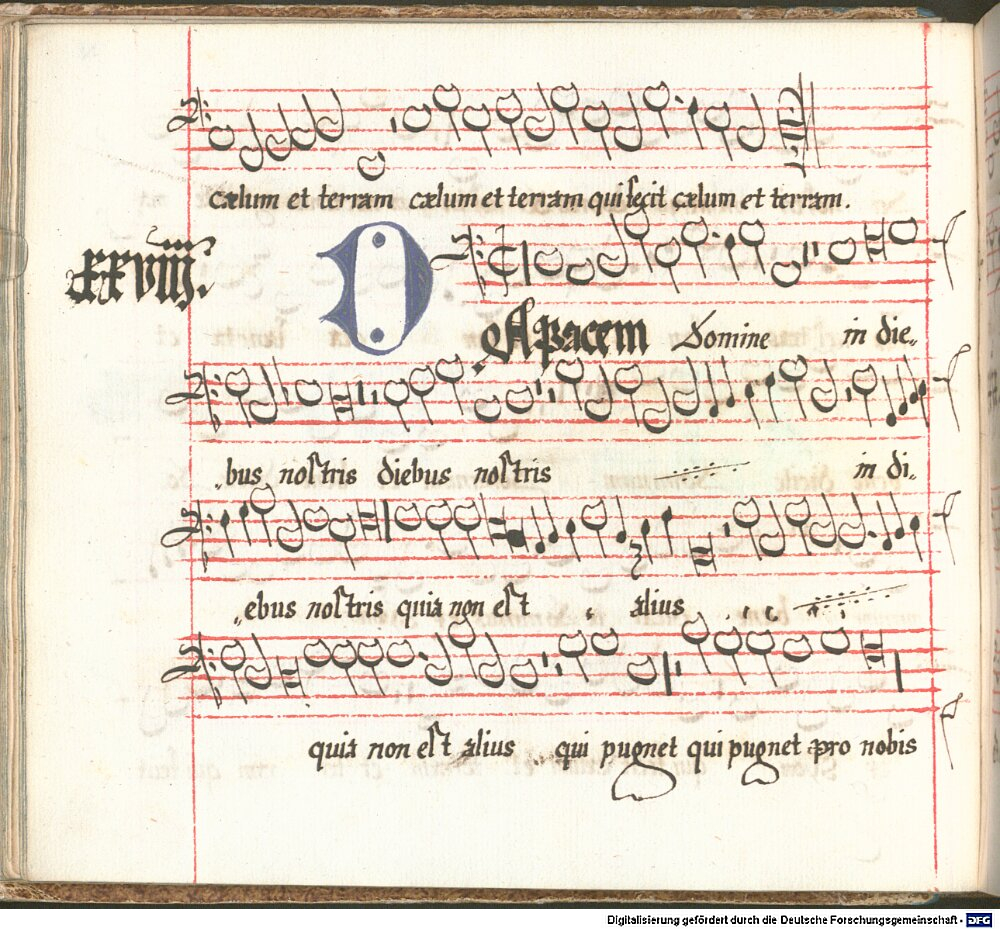 cælum et terram cælum et terram qui fecit cælum et terram.
xxviiij.
DA pacem Domine in die„
„bus nostris diebus nostris in di„
„ebus nostris quia non est alius
quia non est alius qui pugnet qui pugnet pro nobis
Digitalisierung gefördert durch die Deutsche Forschungsgemeinschaft - DFG